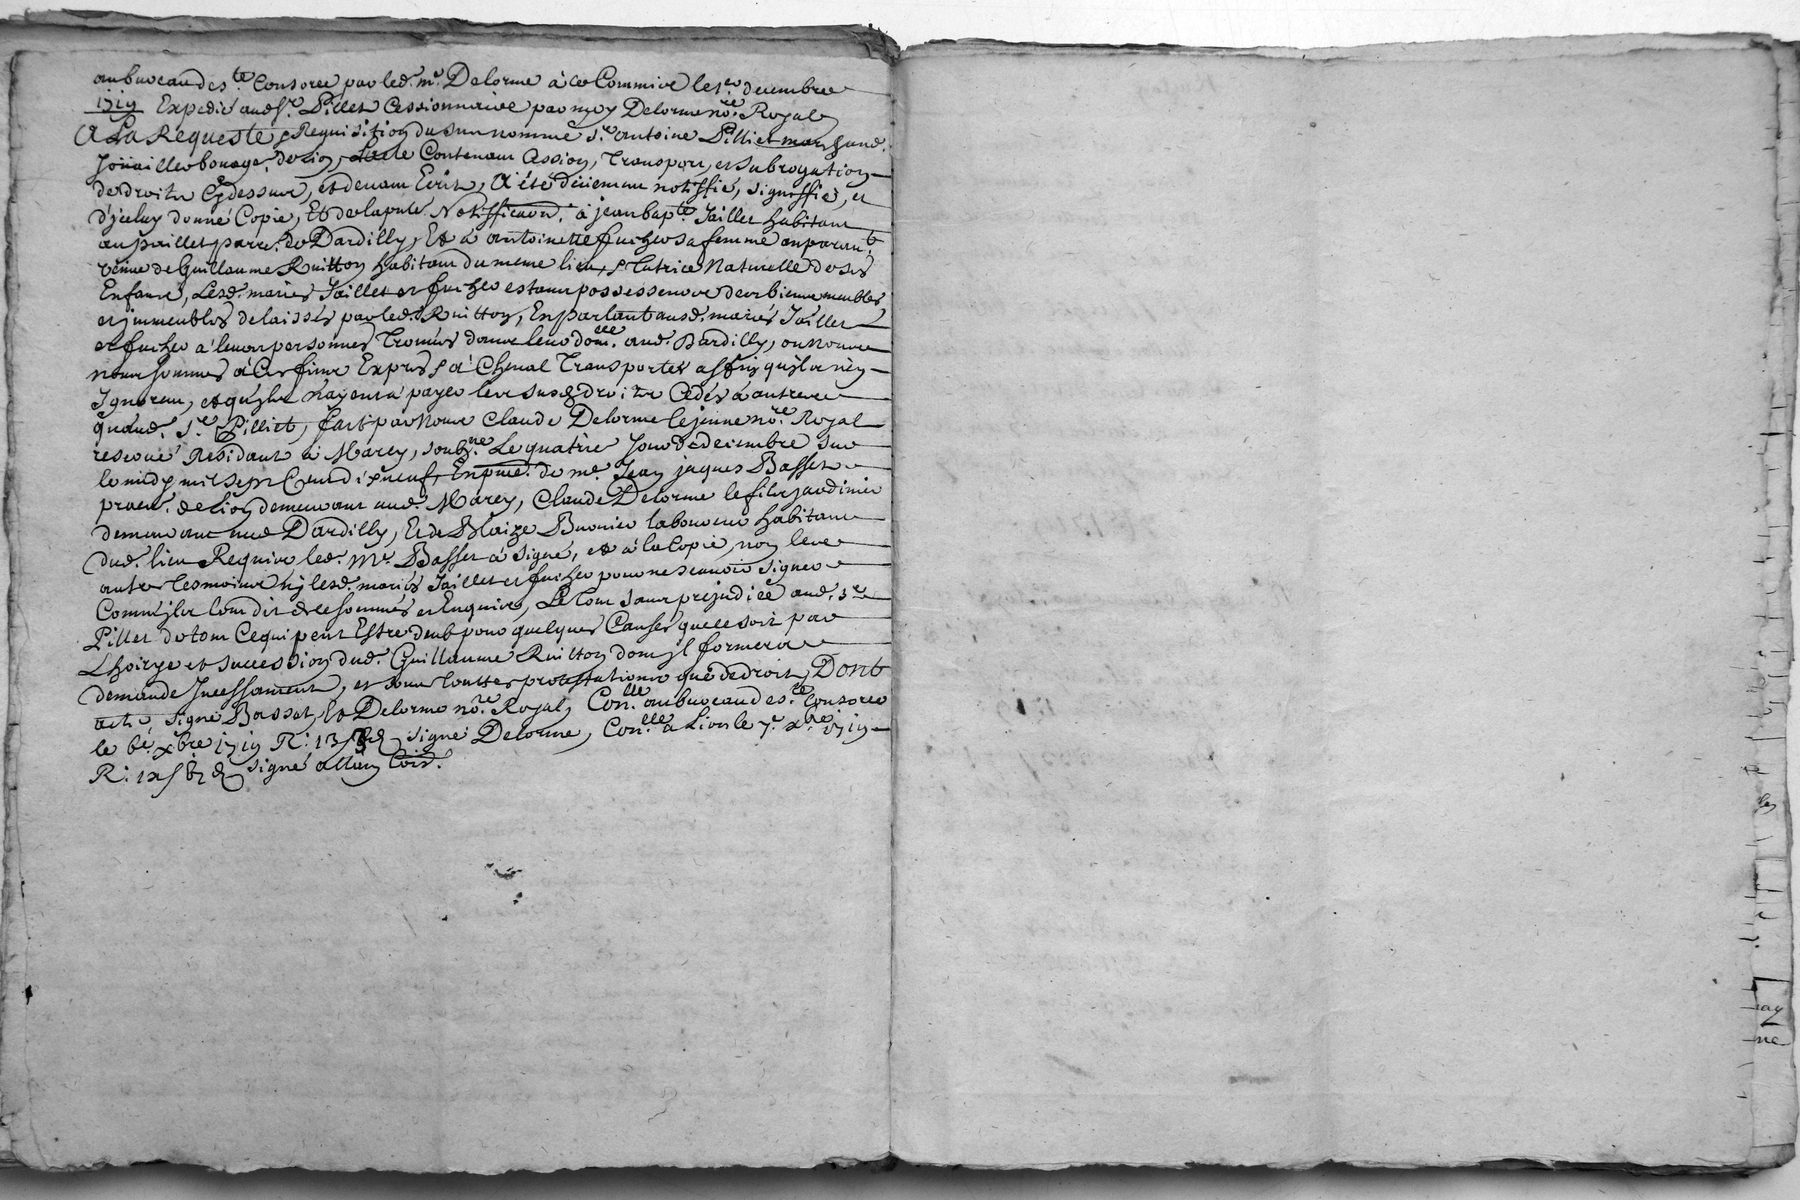 au bureau de s.te Consorce par led. m.e Delorme à ce Commis le 1.er decembre
1719 Expedié aud. s.r Pillet Cessionnaire par moy Delorme no.re Royal
A La Requeste & Requisition du surnommé s.r antoine Pilliet marchand
Joüaillier bourge. de Lion, Lacte Contenant Cession, Transport, et subrogation
de droits Cy dessus, et devant Ecrit, A été düement notiffié, signiffié, et
d'jceluy donné Copie, Et de la pnte Notifficaon. à jean bap.te Jaillet habitant
au paillet parre. de Dardilly, Et à antoinette fucher sa femme auparaut.
veuve de Guillaume Ruitton habitant du meme lieu, & Tutrice Naturelle de ses
Enfans, Lesd. mariés Jaillet et fucher estant possesseurs des biens meubles
et jmmeubles delaissés par led. Ruitton, En parlant ausd. mariés Jaillet
et fucher a leurs personnes Trouvés dans leur dom.lle aud. Dardilly, ou nous
nous sommes à Ces fins Exprés & à Cheval Transportés affin qu'jls n'en
Ignorent, et qu'jls n'ayent a payer les susd. droits Cédés à autres
qu'aud. s.r Pilliet, fait par Nous Claude Delorme le jeune no.re Royal
reservé Residant à Marcy, soubz.ne Le quatrie Jour de decembre sur
le midy mil sept Cent dix neuf, En pnce. de me. Jean jaques Basset
procu. de Lion demeurant aud. Marcy, Claude Delorme le fils jardinier
demeurant aud Dardilly, Et de Blaize Bunier laboureur habitant
dud. lieu Requis led. M.e Basset a signé, et à la Copie, non les
autres Tesmoins ny lesd. mariés Jaillet et fucher pour ne scavoir signer
Comm'jls l'ont dit de ce sommés et Enquis, Le Tout sans prejudice aud. s.r
Pillet de tout Ce qui peut Estre deub pour quelques Causes que ce soit par
L'hoirye et succession dud. Guillaume Ruitton dont jl formera
demande Incessament, et sous touttes protestations que de droit, Dont
acte signé Basset, Et Delorme no.re Royal, Con.llé au bureau de s.te Consorce
le 6e. xbre 1719 R: signé Delorme, Con.llé a Lion le 7e. xbre 1719
R: signé